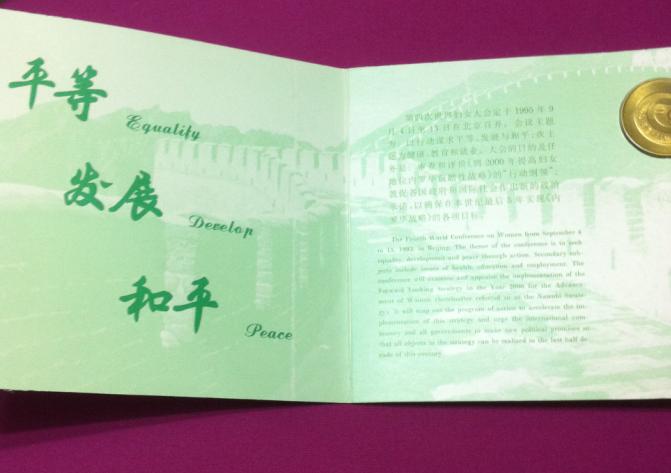 平等
Equality
发展
Develop
和平
Peace
第四次世界妇女大会定于1995年9
月4日至15日在北京召开。会议主题
为：以行动谋求平等、发展与和平；次主
题为健康、教育和就业。大会的目的及任
务是：审查和评价《到2000年提高妇女
地位内罗毕前瞻性战略》的“行动纲领”；
敦促各国政府和国际社会作出新的政治
承诺，以确保在本世纪最后5年实现《内
罗毕战略》的各项目标。
The Fourth World Conference on Women from September 4
to 15, 1995, in Beijing. The theme of the conference is to seek
equality, development and peace through action. Secondary sub-
jects include issues of health, education and employment. The
conference will examine and appraise the implementation of the
Forward Looking Strategy in the Year 2000 for the Advance-
ment of Women (hereinafter referred to as the Nairobi Strate-
gy). It will map out the program of action to accelerate the im-
plementation of this strategy and urge the international com
munity and all governments to make new political promises so
that all objects in the strategy can be realized in the last half de
cade of this century.